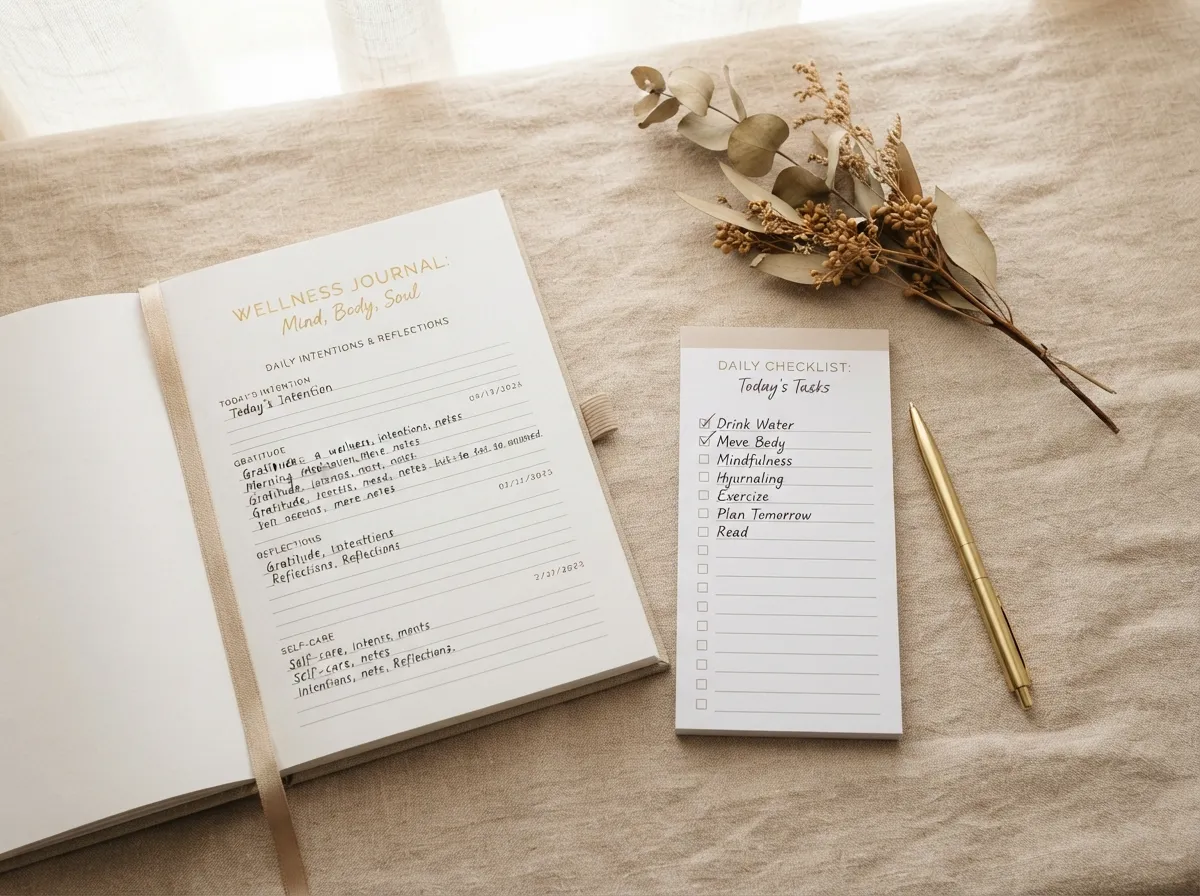 WELLNESS JOURNAL:
Mind, Body, Soul
DAILY INTENTIONS & REFLECTIONS
TODAY'S INTENTION
Today's Intention
GRATITUDE
a wellness, intentions, netes
Morning mere notes
Gratitude, nort, notes
Gratitude, notes,
mere notes
REFLECTIONS
Gratitude, Intenttions
Reflections, Reflections
SELF-CARE
Self-care, intents, monts
Self-cars, notes
Intentions, note, Reflections.
DAILY CHECKLIST:
Today's Tasks
Drink Water
Meve Bedy
Mindfulness
Hyurnaling
Exercize
Plan Temorrow
Read